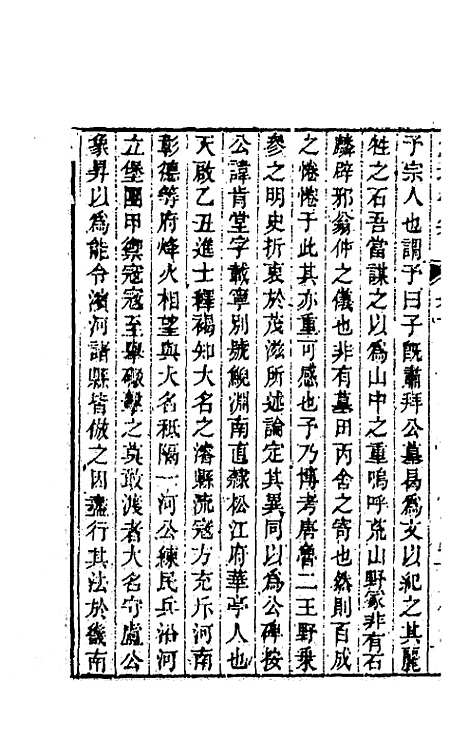 予宗人也謂予曰子旣肅拜公墓曷爲文以紀之其麗
牲之石吾當謀之以爲山中之重嗚呼荒山野篆非有石
麟辟邪翁仲之儀也非有墓田丙舍之寄也然則百成
之惓惓于此其亦重可感也予乃博考唐魯二王野乗
參之明史折衷於茂滋所述論定其異同以爲公碑按
公諱肯堂字載寧別號鯢淵南直隸松江府華亭人也
天啟乙丑進士釋褐知大名之濬縣流寇方充斥河南
彰德等府烽火相望與大名祇隔一河公練民兵沿河
立堡團甲禦寇寇至舉礮擊之莫敢渡者大名守盧公
象昇以爲能令濱河諸縣皆倣之因遂行其法於畿南